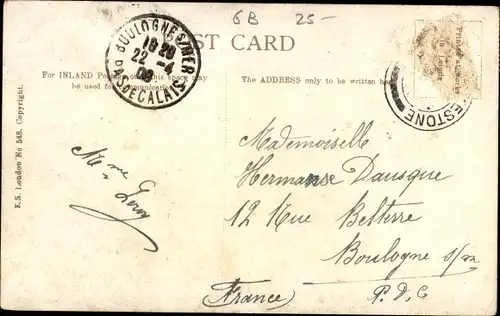 6B 25-
ST CARD
BOULOGNE S/MER
18 20
22 -4
PAS DE CALAIS
For INLAND
this space may
be used for
The ADDRESS only to be written
Printed in
ESTONE
E.S. London No 548. Copyright.
Mademoiselle
Hermanse Dausque
12 Rue Belterre
Boulogne s/m
(France) P.D.C